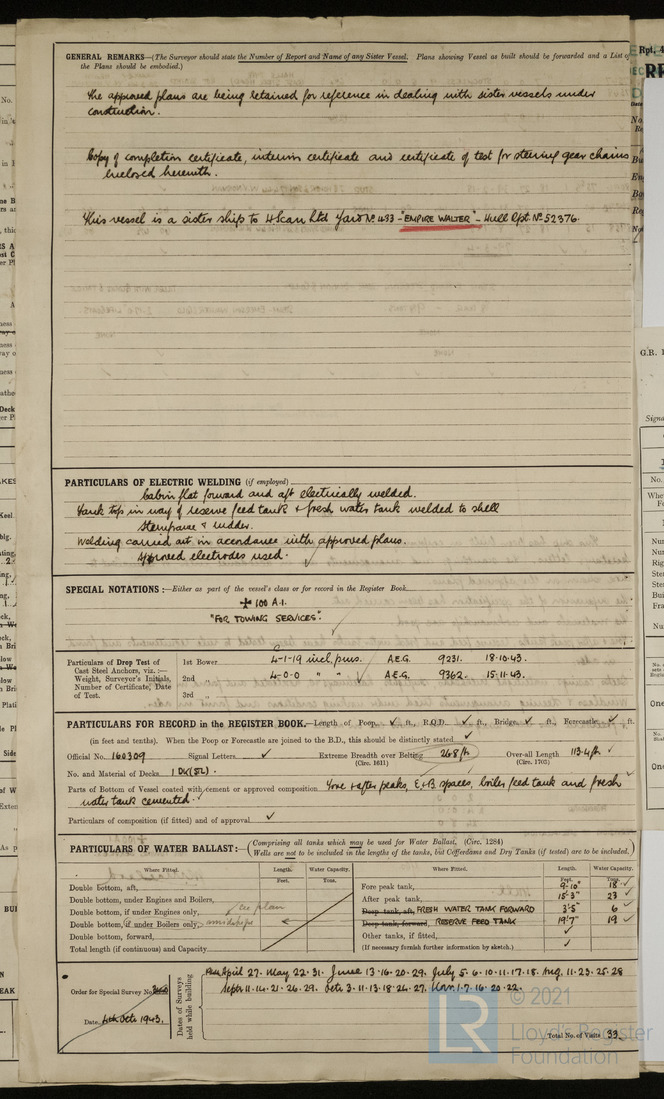 GENERAL REMARKS—(The Surveyor should state the Number of Report and Name of any Sister Vessel. Plans showing Vessel as built should be forwarded and a List of
the Plans should be embodied.)
The approved plans are being retained for reference in dealing with sister vessels under
construction.
Copy of completion certificate, interim certificate and certificate of test for steering gear chains
enclosed herewith.
This vessel is a sister ship to Yard No. 433 - "EMPIRE WALTER" - Hull Rpt. No. 52376.
PARTICULARS OF ELECTRIC WELDING (if employed)
Cabin flat forward and aft electrically welded.
Tank top in way of reserve feed tank & fresh water tank welded to shell
Sternframe & rudder.
Welding carried out in acordance with approved plans.
Approved electrodes used.
SPECIAL NOTATIONS:—Either as part of the vessel's class or for record in the Register Book
✠ 100 A.1.
"FOR TOWING SERVICES".
Particulars of Drop Test of
Cast Steel Anchors, viz.:—
Weight, Surveyor's Initials,
Number of Certificate, Date
of Test.
1st Bower 4-1-19 incl. pins. A.E.G. 9231. 18.10.43.
2nd „ 4-0-0 " " A.E.G. 9362. 15.11.43.
3rd „
PARTICULARS FOR RECORD in the REGISTER BOOK.—Length of Poop ✓ ft., R.Q.D. ✓ ft., Bridge ✓ ft., Forecastle ✓ ft.
(in feet and tenths). When the Poop or Forecastle are joined to the B.D., this should be distinctly stated ✓
Official No. 160309 Signal Letters ✓ Extreme Breadth over Belting 26.8 ft Over-all Length 113.4 ft ✓
(Circ. 1611) (Circ. 1703)
No. and Material of Decks 1 DK (STL).
Parts of Bottom of Vessel coated with cement or approved composition Fore & after peaks, E&B spaces, boiler feed tank and fresh
water tank cemented.
Particulars of composition (if fitted) and of approval ✓
PARTICULARS OF WATER BALLAST:— (Comprising all tanks which may be used for Water Ballast, (Circ. 1284)
Wells are not to be included in the lengths of the tanks, but Cofferdams and Dry Tanks (if tested) are to be included.)
Where Fitted. Length. Water Capacity. Where Fitted. Length. Water Capacity.
Feet. Tons. Feet. Tons.
Double bottom, aft, Fore peak tank, 9'-10" 18 ✓
Double bottom, under Engines and Boilers, After peak tank, 15'-3" 23 ✓
Double bottom, if under Engines only, see plan Deep tank, aft, FRESH WATER TANK FORWARD 3'-5" 6 ✓
Double bottom, if under Boilers only, amidships Deep tank, forward, RESERVE FEED TANK 19'-7" 19 ✓
Double bottom, forward, Other tanks, if fitted, ✓
Total length (if continuous) and Capacity (If necessary furnish further information by sketch.) ✓
Order for Special Survey No.
Date 4th Oct. 1943.
Dates of Surveys
held while building
April 27. May 22.31. June 13.16.20.29. July 5.6.10.11.17.18. Aug. 11.23.25.28
Sept. 11.14.21.26.29. Oct. 3.11.13.18.24.27. Nov. 1.7.16.20.22.
Total No. of Visits 33
© 2021
Lloyd's Register
Foundation
LR